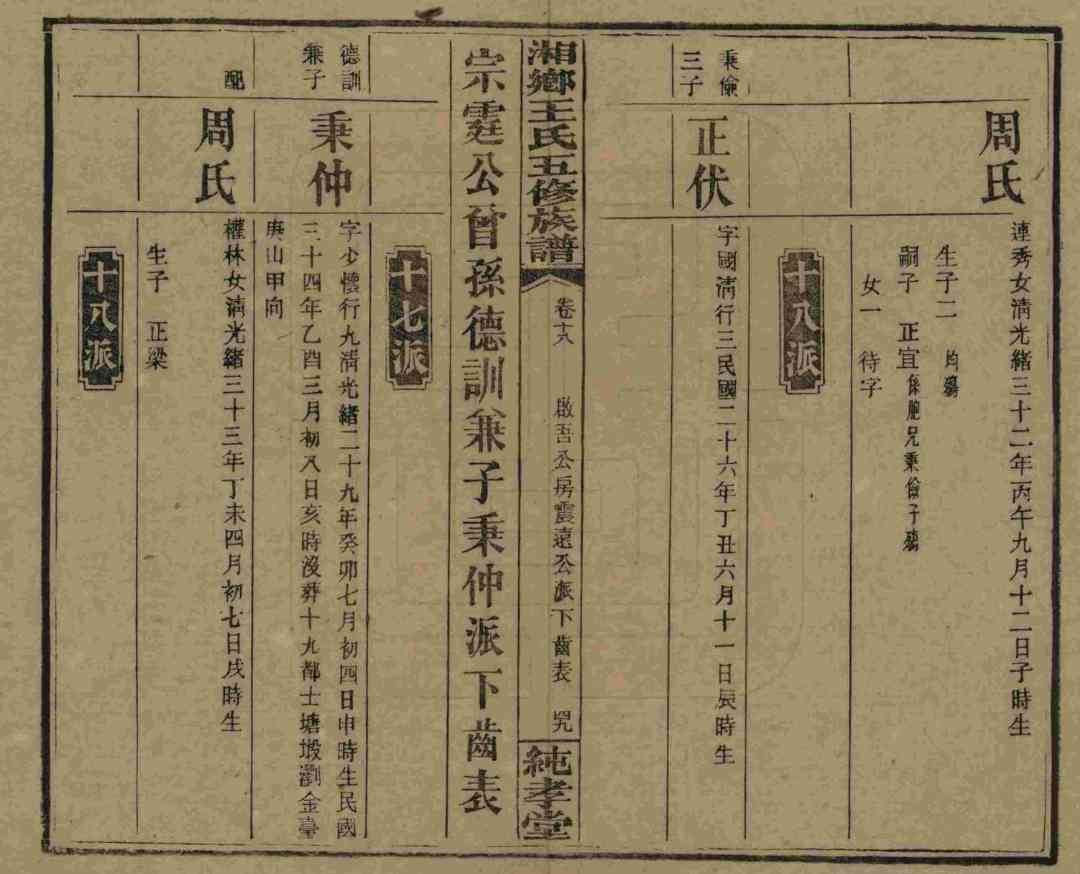 周氏
連秀女清光緒三十二年丙午九月十二日子時生
生子二 均殤
嗣子 正宜係胞兄秉儉子殤
女一 待字
十八派
秉儉三子
正伏
字國清行三民國二十六年丁丑六月十一日辰時生
湘鄉王氏五修族譜
卷十八
啟吾公房震遠公派下齒表
純孝堂
宗霆公曾孫德訓兼子秉仲派下齒表
十七派
德訓兼子
秉仲
字少懷行九清光緒二十九年癸卯七月初四日申時生民國
三十四年乙酉三月初八日亥時沒葬十九都士塘塅劉金臺
庚山甲向
配
周氏
權林女清光緒三十三年丁未四月初七日戌時生
生子 正梁
十八派